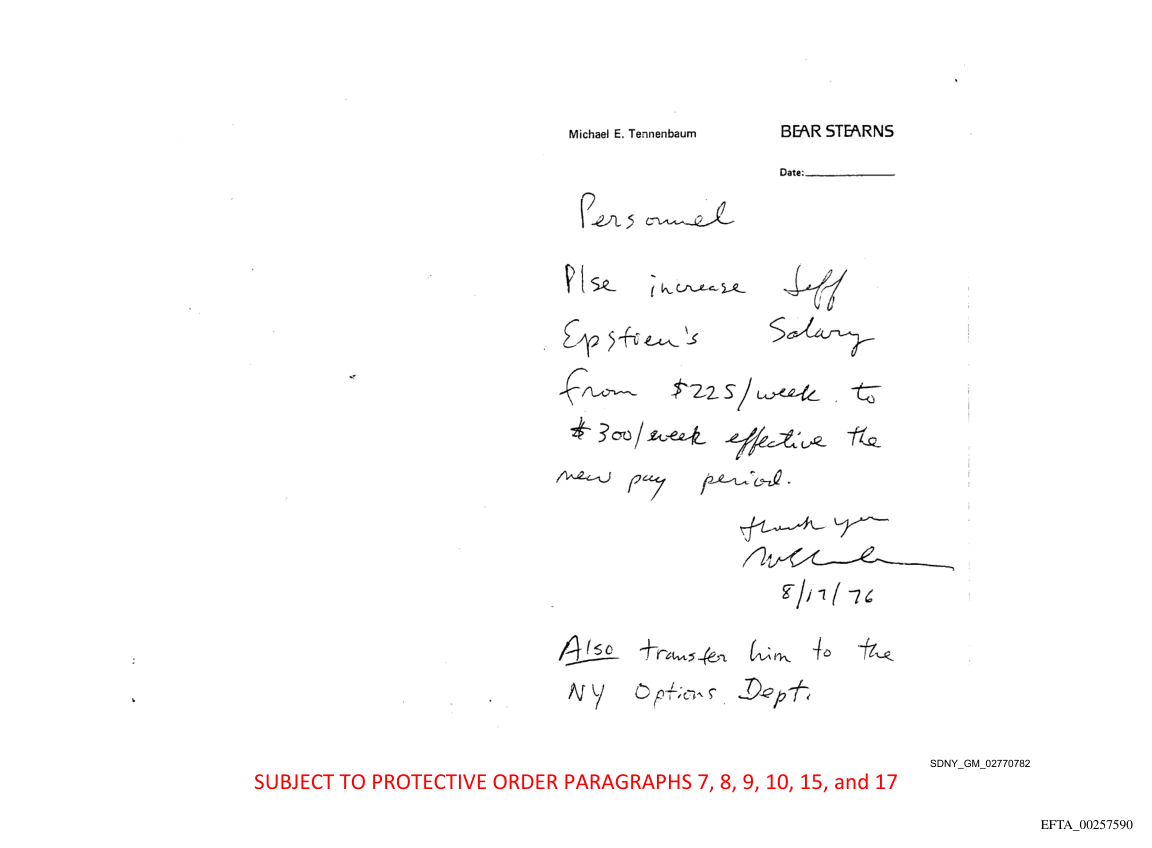 Michael E. Tennenbaum BEAR STEARNS
Date:
Personnel
Plse increase Jeff
Epstien's Salary
from $225/week to
$300/week effective the
new pay period.
thank you
8/17/76
Also transfer him to the
NY Options Dept.
SDNY_GM_02770782
SUBJECT TO PROTECTIVE ORDER PARAGRAPHS 7, 8, 9, 10, 15, and 17
EFTA_00257590